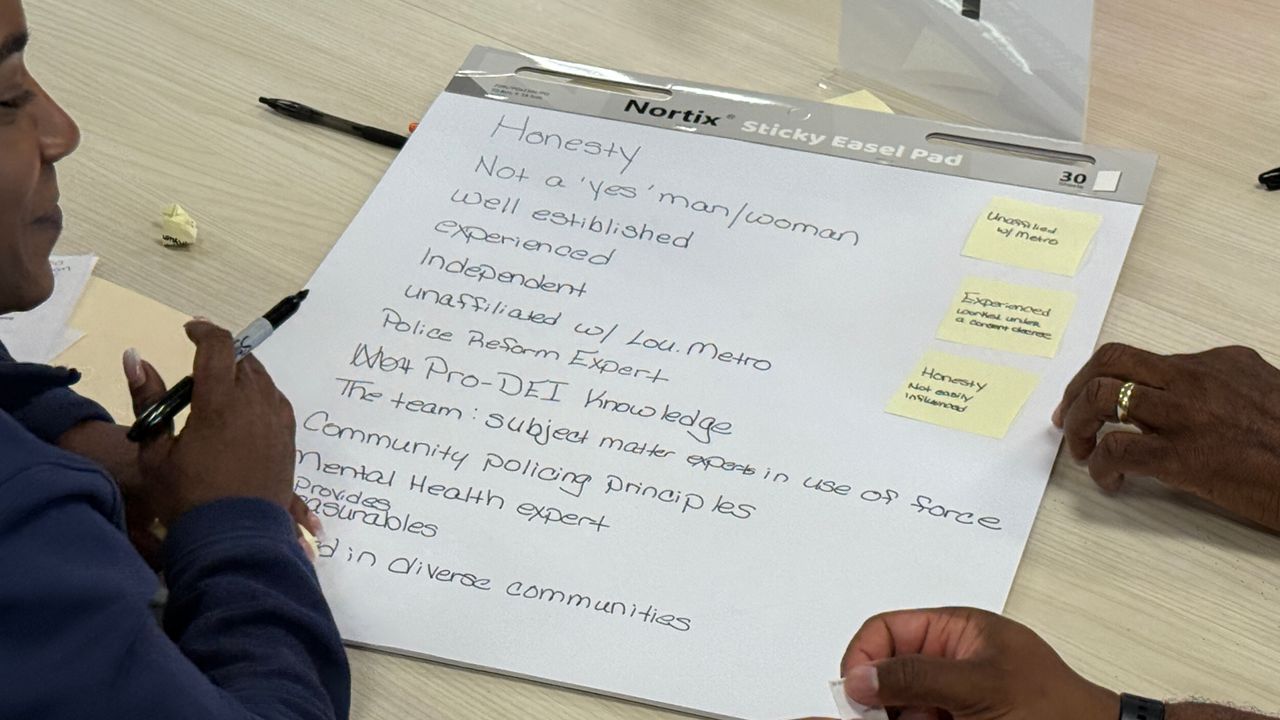 Nortix® Sticky Easel Pad
30
Sheets
Honesty
Not a 'yes' man/woman
well estiblished
experienced
Independent
unaffiliated w/ Lou. Metro
Police Reform Expert
Not Pro-DEI Knowledge
The team: subject matter experts in use of force
Community policing principles
Mental Health expert
Provides
easurables
d in diverse communities
Unaffilied
w/ Metro
Experienced
worked under
a consent decree
Honesty
Not easily
influenced